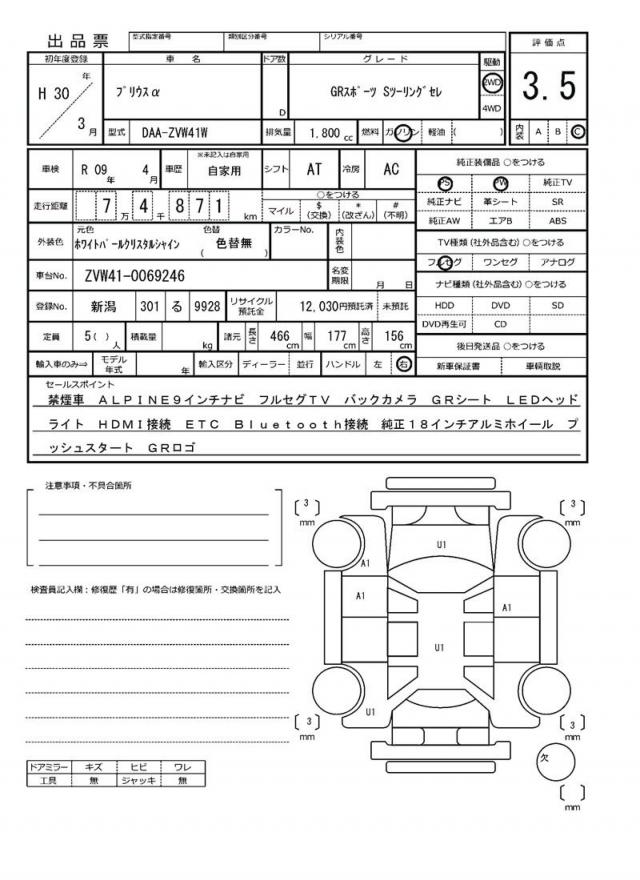 出品票 型式指定番号 類別区分番号 シリアル番号
初年度登録 車名 ドア数 グレード 駆動 評価点
H 30 年 3 月 プリウスα D GRスポーツ Sツーリングセレ 2WD 4WD 3.5
型式 DAA-ZVW41W 排気量 1.800 cc 燃料 ガソリン 軽油 ( ) 内装 A B C
車検 R 09 年 4 月 車歴 ※未記入は自家用 自家用 シフト AT 冷房 AC 純正装備品 ○をつける
PS PW 純正TV
走行距離 7 万 4 千 8 7 1 km ○をつける 純正ナビ 革シート SR
マイル $ (交換) * (改ざん) # (不明) 純正AW エアB ABS
外装色 元色 ホワイトパールクリスタルシャイン 色替 ( 色替無 ) カラーNo. 内装色 TV種類 (社外品含む) ○をつける
フルセグ ワンセグ アナログ
車台No. ZVW41-0069246 名変期限 月 日 ナビ種類 (社外品含む) ○をつける
登録No. 新潟 301 る 9928 リサイクル預託金 12,030円預託済 未預託 HDD DVD SD
DVD再生可 CD
定員 5 ( ) 人 積載量 kg 諸元 長さ 466 cm 幅 177 cm 高さ 156 cm 後日発送品 ○をつける
輸入車のみ⇒ モデル年式 年 輸入区分 ディーラー 並行 ハンドル 左 右 新車保証書 車輌取説
セールスポイント
禁煙車 ALPINE9インチナビ フルセグTV バックカメラ GRシート LEDヘッド
ライト HDMI接続 ETC Bluetooth接続 純正18インチアルミホイール プ
ッシュスタート GRロゴ
注意事項・不具合箇所
検査員記入欄:修復歴「有」の場合は修復箇所・交換箇所を記入
ドアミラー キズ ヒビ ワレ
工具 無 ジャッキ 無
3 mm
3 mm
U1
A1
A1
A1
U1
U1
3 mm
3 mm
欠
mm